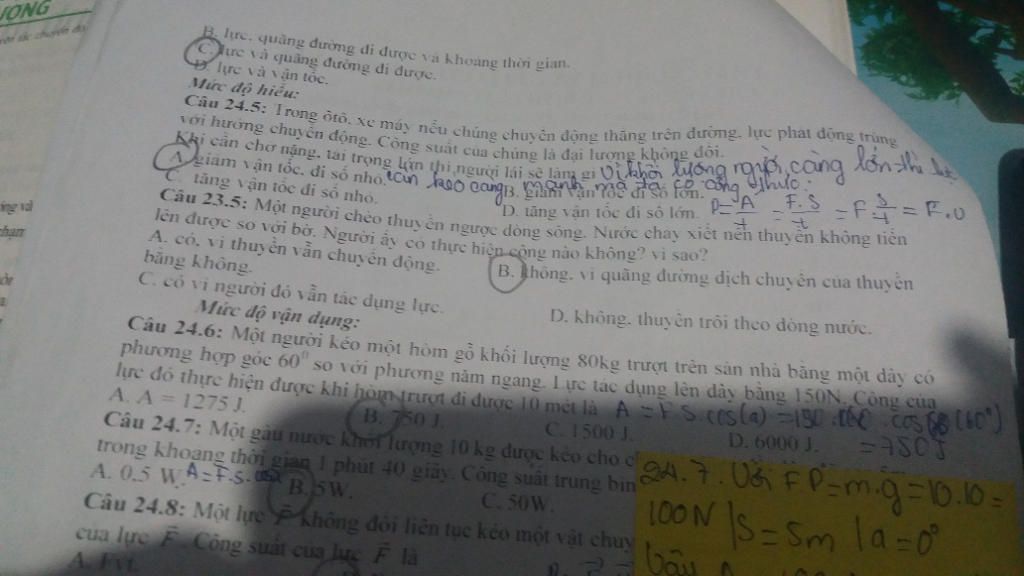 ƯƠNG
B. lực, quãng đường đi được và khoảng thời gian.
C. lực và quãng đường đi được.
D. lực và vận tốc.
Mức độ hiểu:
Câu 24.5: Trong ôtô, xe máy nếu chúng chuyển động thẳng trên đường, lực phát động trùng
với hướng chuyển động. Công suất của chúng là đại lượng không đổi.
Khi cần chở nặng, tải trọng lớn thì người lái sẽ làm gì Vì khối lượng người càng lớn thì
A. giảm vận tốc, đi số nhỏ. cần kéo càng mạnh mà ta có công thức:
B. giảm vận tốc đi số lớn.
C. tăng vận tốc đi số nhỏ.
D. tăng vận tốc đi số lớn. P = A/t = F.S/t = F S/t = F.v
Câu 23.5: Một người chèo thuyền ngược dòng sông. Nước chảy xiết nên thuyền không tiến
lên được so với bờ. Người ấy có thực hiện công nào không? vì sao?
A. có, vì thuyền vẫn chuyển động.
B. không, vì quãng đường dịch chuyển của thuyền
bằng không.
C. có vì người đó vẫn tác dụng lực.
D. không, thuyền trôi theo dòng nước.
Mức độ vận dụng:
Câu 24.6: Một người kéo một hòm gỗ khối lượng 80kg trượt trên sàn nhà bằng một dây có
phương hợp góc 60⁰ so với phương nằm ngang. Lực tác dụng lên dây bằng 150N. Công của
lực đó thực hiện được khi hòm trượt đi được 10 mét là A = F.S.cos(a) = 150 . cos (60°)
A. A = 1275 J. B. 750 J. C. 1500 J. D. 6000 J. = 750J
Câu 24.7: Một gàu nước khối lượng 10 kg được kéo cho
trong khoảng thời gian 1 phút 40 giây. Công suất trung bìn
A. 0.5 W. A = F.S. B. 5W. C. 50W.
24.7. Với F P = m.g = 10.10 =
100N | S = 5m | a = 0°
Vậy
Câu 24.8: Một lực F không đổi liên tục kéo một vật chuy
của lực F. Công suất của lực F là
A. Fvt.